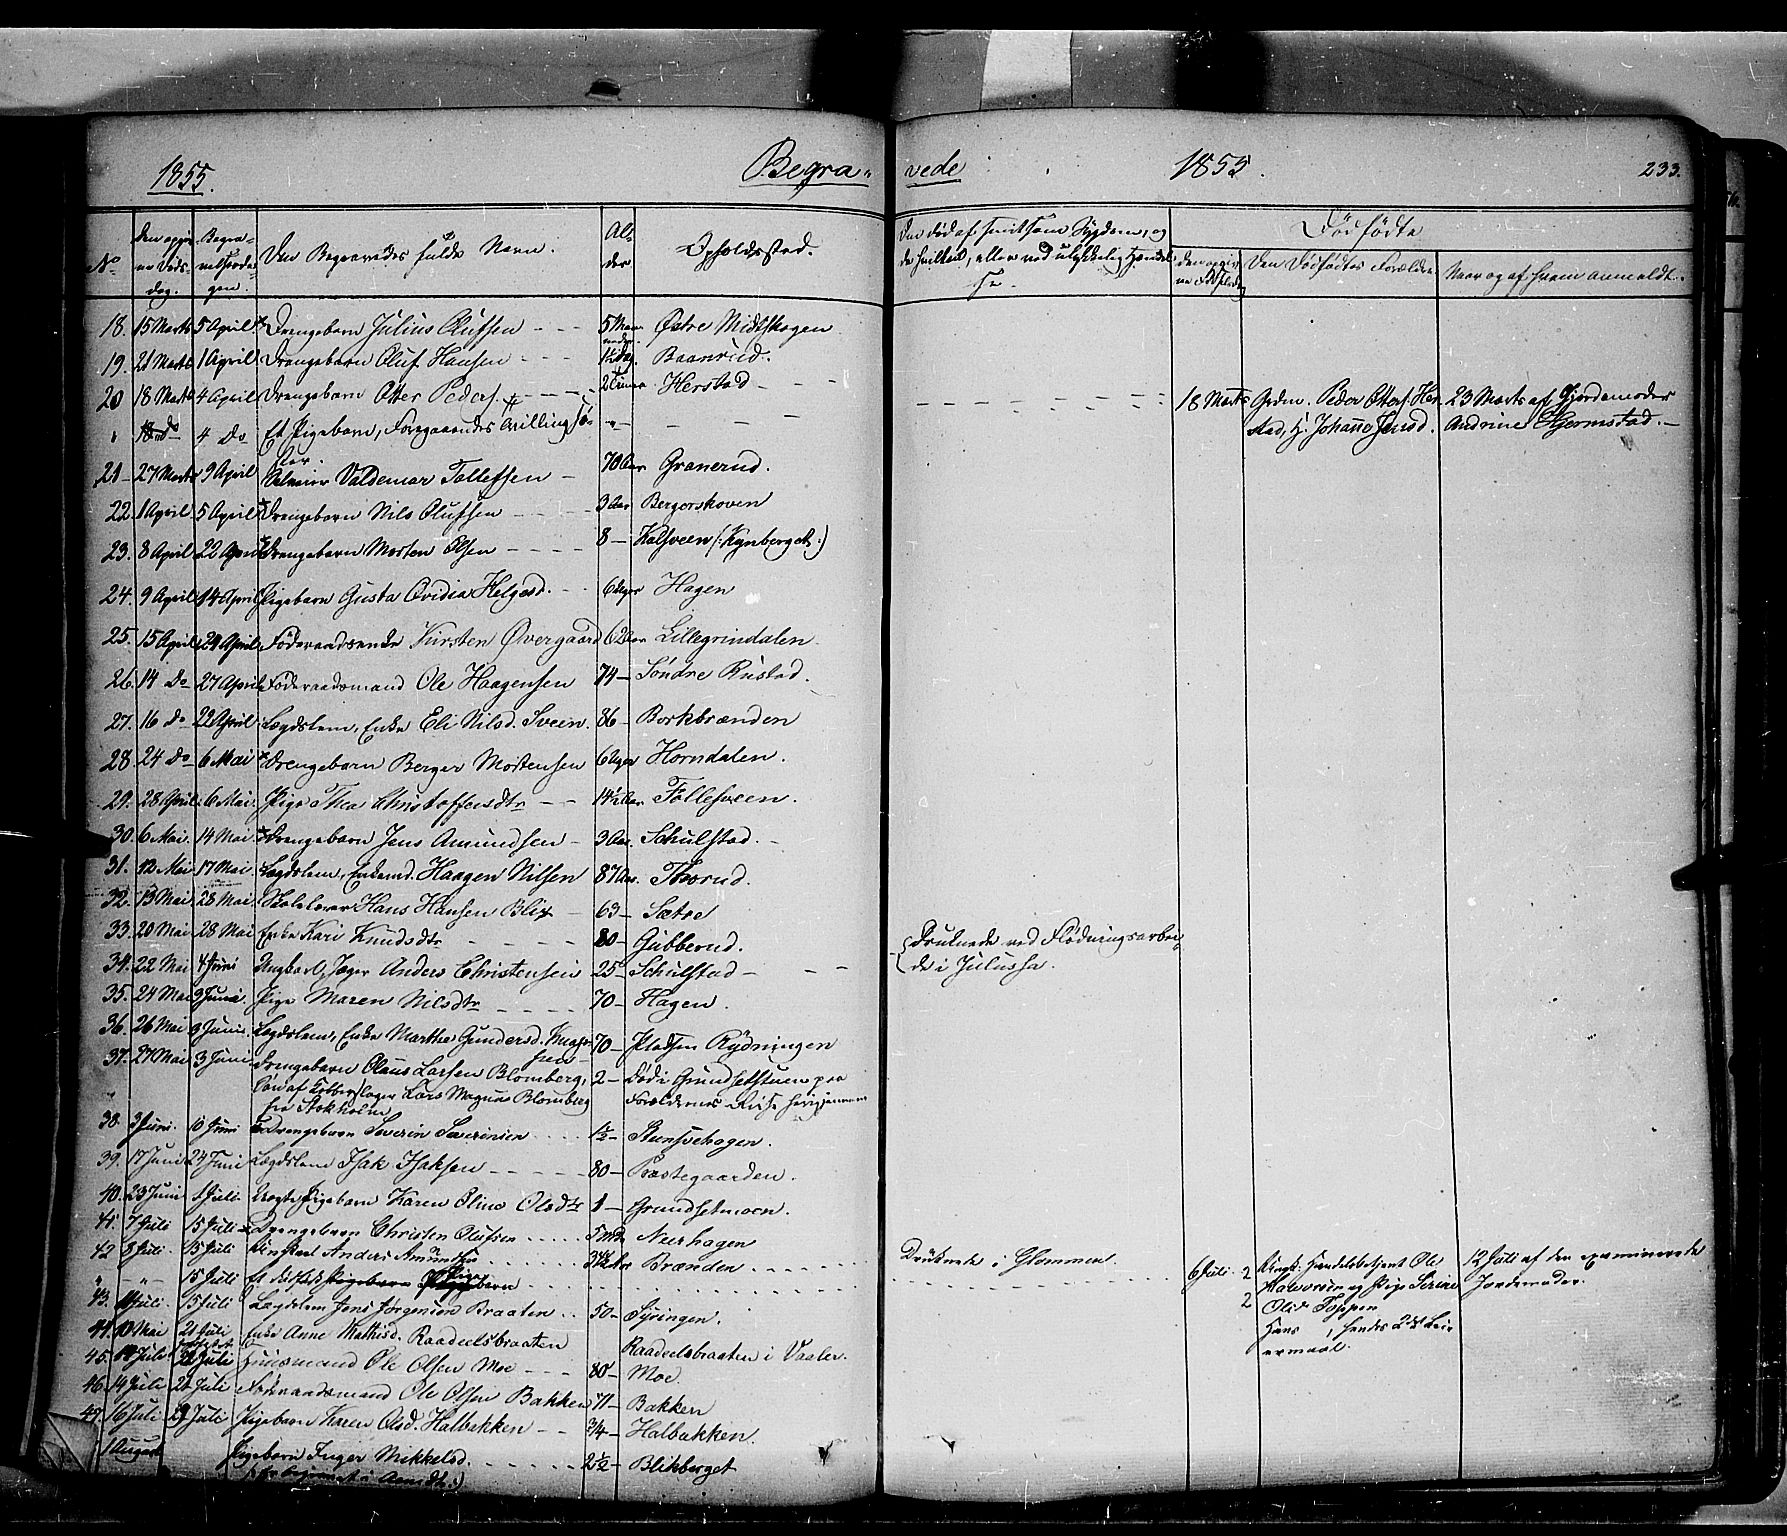 1855. Begra- vede 1855. 233.
No Den opgivne Døds-dag. Begravelsesdagen. Den Begravedes fulde Navn. Alder Opholdssted. Død født
Den Dødfødtes Forældre Naar og af hvem anmeldt.
18. 15 Marts 5 April Drengebarn Julius Olufsen 5 Maaneder Østre Midtskogen
19. 21 Marts 1 April Drengebarn Oluf Hansen 1½ Dag. Baanrud.
20 18 Marts 4 April Drengebarn Otter Peders. 2 Timer Herstad 18 Marts Grdm. Peder Otters. Her- 23 Marts af Gjordemoder
" 18 do 4 Do Et Pigebarn, Foregaaendes Tvilling sø- stad, H. Johanne Jensd. Andrine Hjermstad.
ster.
21 27 Marts 9 April Valdemar Tollefsen 70 Aar Granerud.
22. 1 April 5 April Drengebarn Nils Olufsen 3 Aar Bergerskoven
23. 8 April 22 April Drengebarn Morten Olsen 8 Kalsveen (:Kynberget:)
24. 9 April 14 April Pigebarn Gusta Ovidia Helgesd. 6 Uger Hagen
25. 15 April 24 April Føderaadsenke Kirsten Øvergaard 62 Aar Lillegrindalen
26. 14 Do 27 April Føderaadsmand Ole Haagensen 74 Søndre Rustad.
27. 16 Do 22 April Lægdslem, Enke Eli Nilsd. Sveen. 86 Borkbrænden
28 24 Do 6 Mai Drengebarn Berger Mortensen 6 Uger Horndalen.
29. 28 April 6 Mai Pige Thea Christoffersdtr 14½ Aar Tollefsveen.
30. 6 Mai. 14 Mai Drengebarn Jens Amundsen 3 Aar. Schulstad.
31. 12 Mai 17 Mai Lægdslem, Enkemd. Haagen Nilsen 87 Aar. Thorud.
32. 13 Mai 28 Mai Skolelærer Hans Hansen Blix 63 Sætre
33. 20 Mai 28 Mai Enke Kari Knudsdtr 80 Gubberud. Druknede ved Flødningsarbei-
34. 22 Mai 4 Juni Ungkarl, Jæger Anders Christensen 25 Schulstad de i Julussa.
35. 24 Mai 3 Juni Pige Maren Nilsdtr 70 Hagen.
36. 26 Mai 3 Juni Lægdslem, Enke Marthe Gundersd. 70 Pladsen Rydningen
37. 27 Mai 3 Juni Drengebarn Claus Larsen Blomberg, 2 Død i Grundsetstuen paa
Søn af Kobberslager Lars Magnus Blomberg Forældrenes Reise herigjennem
fra Stokholm
38. 3 Juni. 10 Juni Drengebarn Severin Severinsen 1½ Stensvehagen.
39. 17 Juni 24 Juni Lægdslem Isak Isaksen 80 Præstegaarden.
40. 23 Juni 1 Juli Pigebarn Karen Oline Olsdtr 1 Grundsetmoen.
41. 7 Juli 15 Juli Drengebarn Christen Olufsen 5 Mdr Nerhagen
42 8 Juli. 15 Juli Ungkarl Anders Amundsen Brænden Druknede i Glommen.
" " 15 Juli Et dødfødt Pigebarn 6 Juli. 2 Ungk. Handelsbetjent Ole 12 Juli af den examinerede
Halvorsen og Pige Serine Jordemoder.
43. 11 Juli. 15 Juli Lægdslem Jens Jørgensen Braaten 50 Syringen. 2 Olsd. Toppen
44. 10 Mai 21 Juli Enke Anne Mathisd. Raadeelsbraaten Raadeelsbraaten i Vaaler. Hans , hendes 2det Leier-
45. 14 Juli 22 Juli Huusmand Ole Olsen Moe 80 Moe. ermaal.
46. 14 Juli 21 Juli Føderaadsmand Ole Olsen Bakken 71 Bakken
47. 16 Juli 29 Juli Pigebarn Karen Olsd. Halbakken ¾ Halbakken.
1 August Pigebarn Inger Mikkelsd. 2½ Blikberget